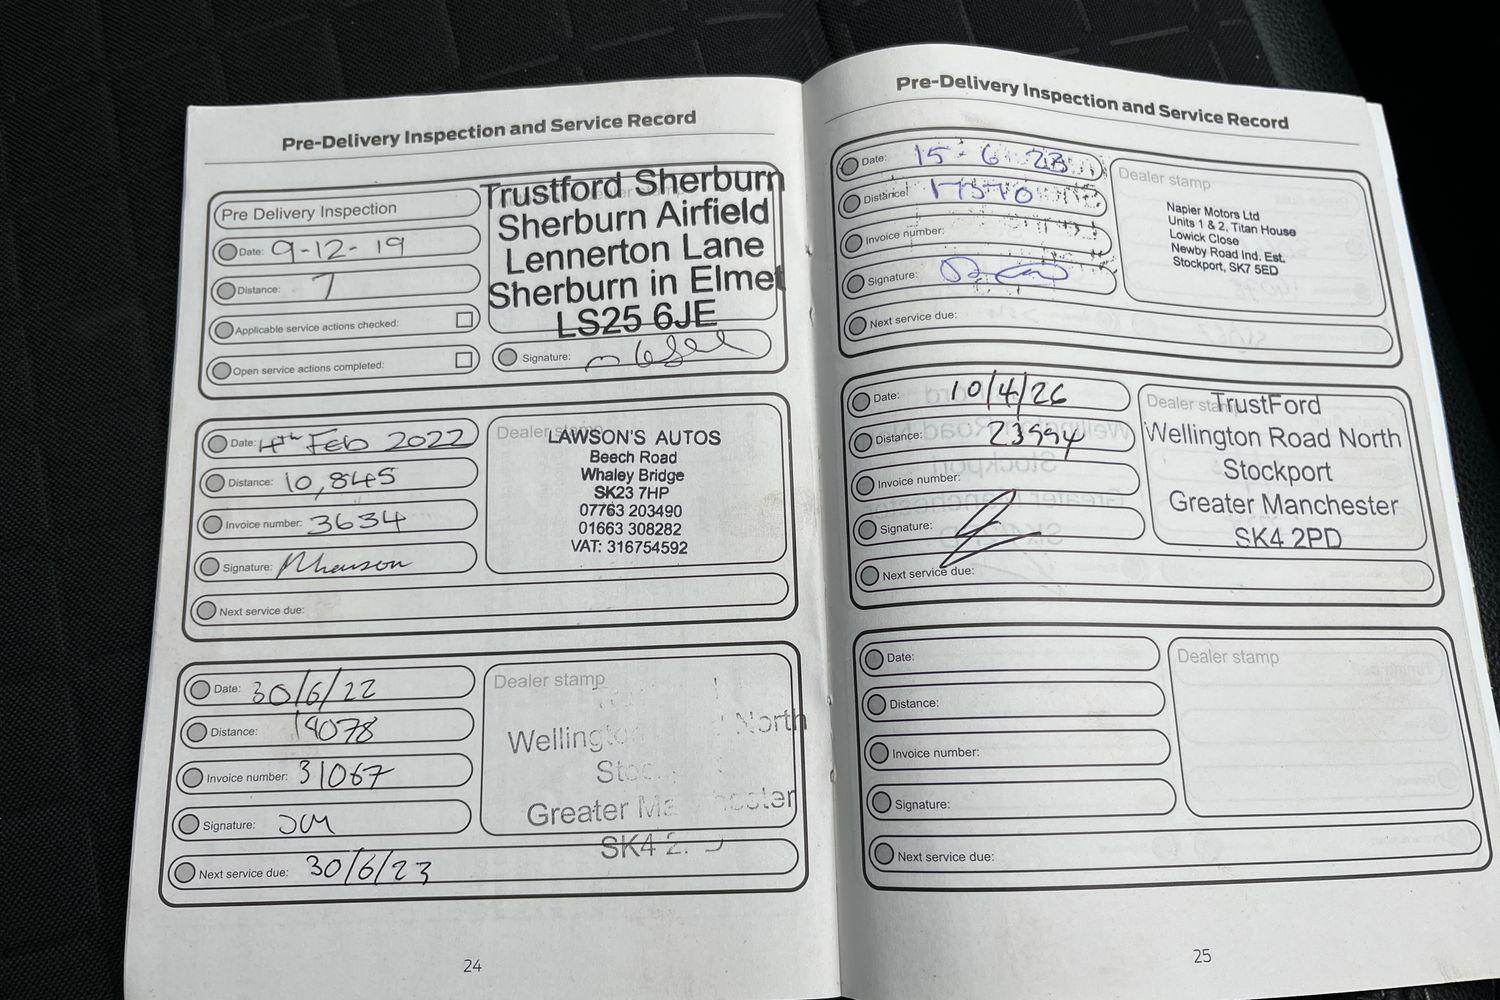 Pre-Delivery Inspection and Service Record
Pre Delivery Inspection
Date: 9-12-19
Distance: 7
Applicable service actions checked:
Open service actions completed:
Trustford Sherburn
Sherburn Airfield
Lennerton Lane
Sherburn in Elmet
LS25 6JE
Signature:
Date: 4th Feb 2022
Distance: 10,845
Invoice number: 3634
Signature:
Next service due:
Dealer stamp
LAWSON'S AUTOS
Beech Road
Whaley Bridge
SK23 7HP
07763 203490
01663 308282
VAT: 316754592
Date: 30/6/22
Distance: 14078
Invoice number: 31067
Signature: JM
Next service due: 30/6/23
Dealer stamp
North
Greater
SK4
24
Pre-Delivery Inspection and Service Record
Date: 15-6-23
Distance:
Invoice number:
Signature:
Next service due:
Dealer stamp
Napier Motors Ltd
Units 1 & 2, Titan House
Lowick Close
Newby Road Ind. Est.
Stockport, SK7 5ED
Date: 10/4/26
Distance: 23994
Invoice number:
Signature:
Next service due:
Dealer stamp
TrustFord
Wellington Road North
Stockport
Greater Manchester
SK4 2PD
Date:
Distance:
Invoice number:
Signature:
Next service due:
Dealer stamp
25